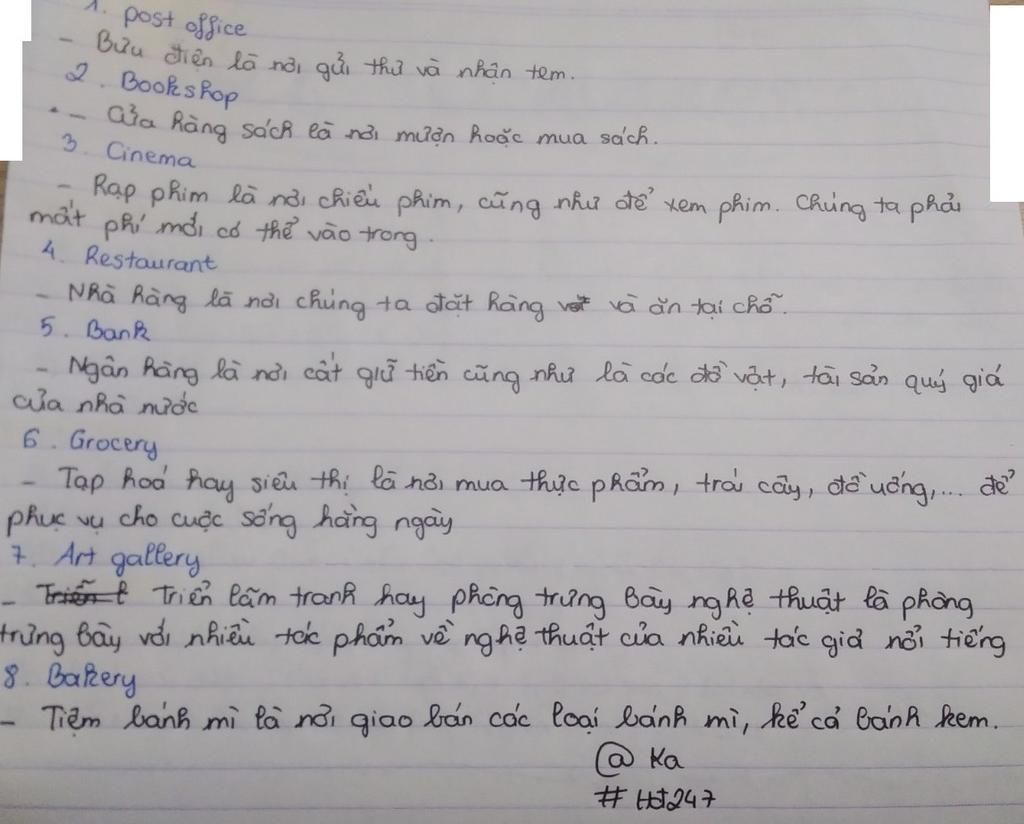 1. post office
- Bưu điện là nơi gửi thư và nhận tem.
2. Bookshop
- Cửa hàng sách là nơi mượn hoặc mua sách.
3. Cinema
- Rạp phim là nơi chiếu phim, cũng như để xem phim. Chúng ta phải
mất phí mới có thể vào trong.
4. Restaurant
- Nhà hàng là nơi chúng ta đặt hàng và ăn tại chỗ.
5. Bank
- Ngân hàng là nơi cất giữ tiền cũng như là các đồ vật, tài sản quý giá
của nhà nước
6. Grocery
- Tạp hoá hay siêu thị là nơi mua thực phẩm, trái cây, đồ uống,... để
phục vụ cho cuộc sống hằng ngày
7. Art gallery
- Triển lãm tranh hay phòng trưng bày nghệ thuật là phòng
trưng bày với nhiều tác phẩm về nghệ thuật của nhiều tác giả nổi tiếng
8. Bakery
- Tiệm bánh mì là nơi giao bán các loại bánh mì, kể cả bánh kem.
@ Ka